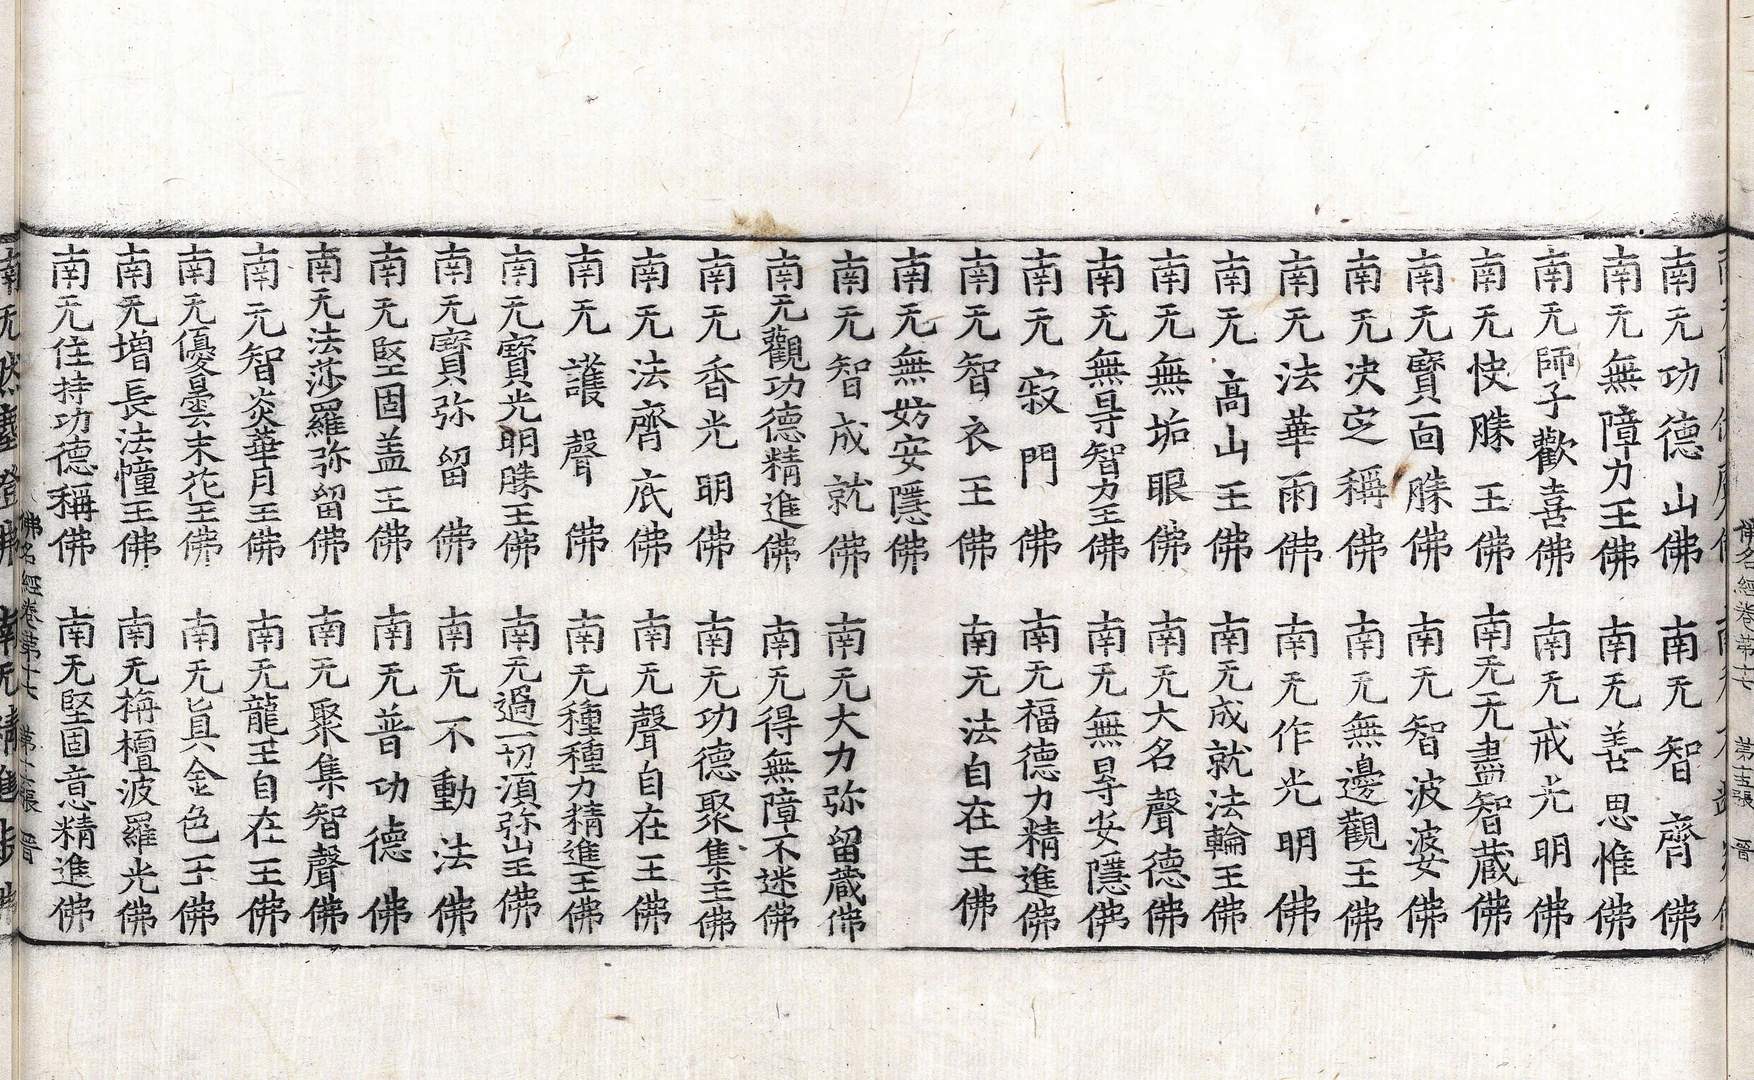 南无功德山佛　南无智齊佛
南无無障力王佛　南无善思惟佛
南无師子歡喜佛　南无戒光明佛
南无快勝王佛　南无无盡智藏佛
南无寶面勝佛　南无智波婆佛
南无决定稱佛　南无無邊觀王佛
南无法華雨佛　南无作光明佛
南无高山王佛　南无成就法輪王佛
南无無垢眼佛　南无大名聲德佛
南无無㝵智力王佛　南无無㝵安隱佛
南无寂門佛　南无福德力精進佛
南无智衣王佛　南无法自在王佛
南无無妨安隱佛
南无智成就佛　南无大力弥留藏佛
南无觀功德精進佛　南无得無障不迷佛
南无香光明佛　南无功德聚集王佛
南无法齊底佛　南无聲自在王佛
南无護聲佛　南无種種力精進王佛
南无寶光明勝王佛　南无過一切湏弥山王佛
南无寶弥留佛　南无不動法佛
南无堅固盖王佛　南无普功德佛
南无法莎羅弥留佛　南无聚集智聲佛
南无智炎華月王佛　南无龍王自在王佛
南无優曇末花王佛　南无眞金色王佛
南无增長法幢王佛　南无栴檀波羅光佛
南无住持功德稱佛　南无堅固意精進佛
佛名經卷第十六　第十六張　晉